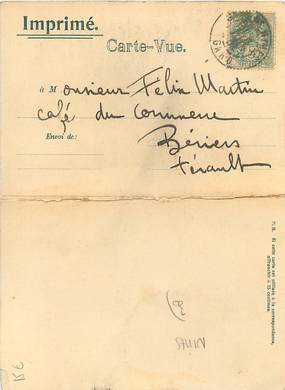 Imprimé.
Carte-Vue.
à Monsieur Félix Martin
café du Commerce
Envoi de:
Béziers
Hérault
N. B. Si cette carte est utilisée à la correspondance,
affranchir à 10 centimes.
GARD
NIMES